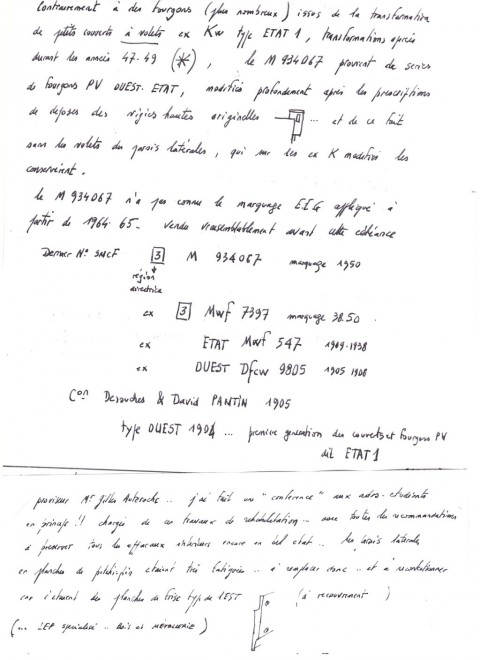 Contrairement à des fourgons (plus nombreux) issus de la transformation
de petits couverts à volets ex Kw type ETAT 1, transformations opérées
durant les années 47-49 (*), le M 934067 provient de series
de fourgons PV OUEST. ETAT, modifiés profondement après les prescriptions
de déposes des vigies hautes originelles ... et de ce fait
sans les volets de parois latérales, qui sur les ex K modifiés les
conservèrent.
Le M 934067 n'a pas connu le marquage E.I.G appliqué à
partir de 1964-65. Vendu vraisemblablement avant cette échéance
Dernier N° SNCF 3 M 934067 marquage 1950
région
directrice
ex 3 Mwf 7397 marquage 38.50.
ex ETAT Mwf 547 1909-1938
ex OUEST Dfcw 9805 1905 1908
Con Desouches & David PANTIN 1905
type OUEST 1904 ... premiere generation des couverts et fourgons PV
dit ETAT 1
proviseur Mr Gilles .. j'ai fait un "conference" aux ados-etudiants
en principe !! chargés de ces travaux de rehabilitation .. avec toutes les recommandations
à preserver tous les interieurs encore en bel etat .. les parois laterales
en planches de etaient très fatiguées .. à remplacer donc .. et à
car c'etaient des planches de frise type de l'EST (à recouvrement)
(un LEP specialisé .. bois et METALLERIE)